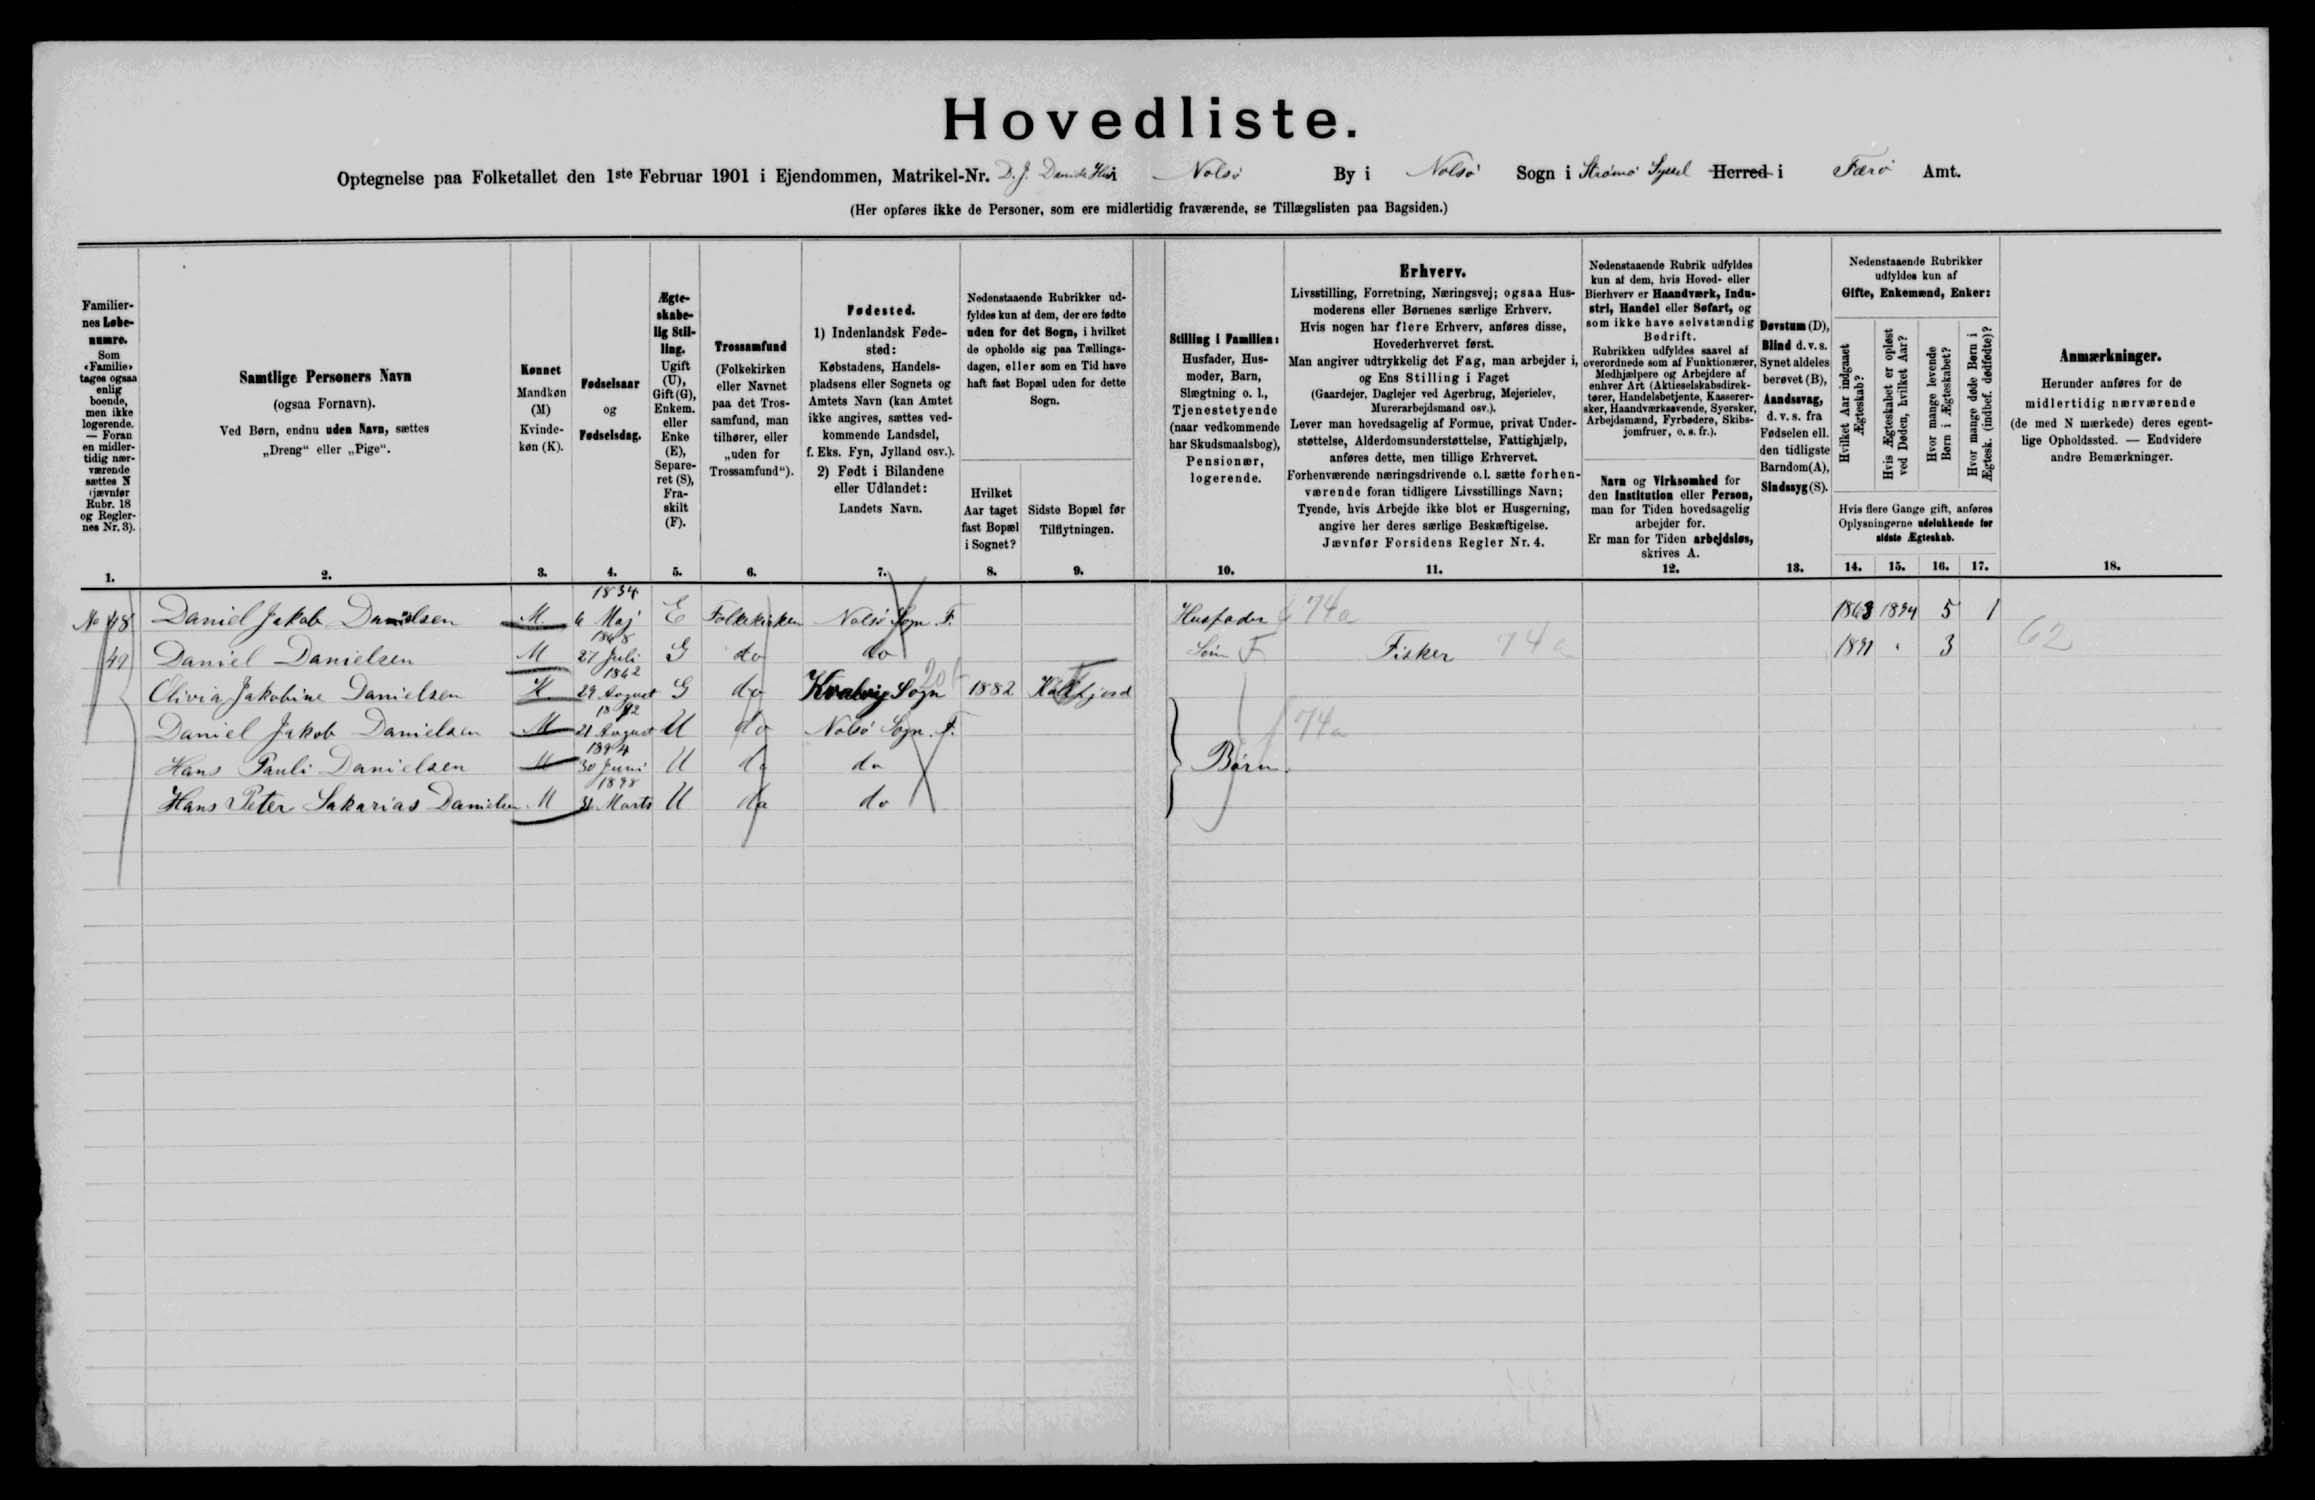 Hovedliste.
Optegnelse paa Folketallet den 1ste Februar 1901 i Ejendommen, Matrikel-Nr. D. J. Nolsø By i Nolsø Sogn i Strømø Syssel Herred i Færø Amt.
(Her opføres ikke de Personer, som ere midlertidig fraværende, se Tillægslisten paa Bagsiden.)
Familier-
nes Løbe-
numre.
Som
«Familie»
tages ogsaa
enlig
boende,
men ikke
logerende.
— Foran
en midler-
tidig nær-
værende
sættes N
(jævnfør
Rubr. 18
og Regler-
nes Nr. 3).
1.
Samtlige Personers Navn
(ogsaa Fornavn).
Ved Børn, endnu uden Navn, sættes
„Dreng“ eller „Pige“.
2.
Kønnet
Mandkøn
(M)
Kvinde-
køn (K).
3.
Fødselsaar
og
Fødselsdag.
4.
Ægte-
skabe-
lig Stil-
ling.
Ugift
(U),
Gift (G),
Enkem.
eller
Enke
(E),
Separe-
ret (S),
Fra-
skilt
(F).
5.
Trossamfund
(Folkekirken
eller Navnet
paa det Tros-
samfund, man
tilhører, eller
„uden for
Trossamfund“).
6.
Fødested.
1) Indenlandsk Føde-
sted:
Købstadens, Handels-
pladsens eller Sognets og
Amtets Navn (kan Amtet
ikke angives, sættes ved-
kommende Landsdel,
f. Eks. Fyn, Jylland osv.).
2) Født i Bilandene
eller Udlandet:
Landets Navn.
7.
Nedenstaaende Rubrikker ud-
fyldes kun af dem, der ere fødte
uden for det Sogn, i hvilket
de opholde sig paa Tællings-
dagen, eller som en Tid have
haft fast Bopæl uden for dette
Sogn.
Hvilket
Aar taget
fast Bopæl
i Sognet?
8.
Sidste Bopæl før
Tilflytningen.
9.
Stilling i Familien:
Husfader, Hus-
moder, Barn,
Slægtning o. l.,
Tjenestetyende
(naar vedkommende
har Skudsmaalsbog),
Pensionær,
logerende.
10.
Erhverv.
Livsstilling, Forretning, Næringsvej; ogsaa Hus-
moderens eller Børnenes særlige Erhverv.
Hvis nogen har flere Erhverv, anføres disse,
Hovederhvervet først.
Man angiver udtrykkelig det Fag, man arbejder i,
og Ens Stilling i Faget
(Gaardejer, Daglejer ved Agerbrug, Mejerielev,
Murerarbejdsmand osv.).
Lever man hovedsagelig af Formue, privat Under-
støttelse, Alderdomsunderstøttelse, Fattighjælp,
anføres dette, men tillige Erhvervet.
Forhenværende næringsdrivende o.l. sætte forhen-
værende foran tidligere Livsstillings Navn;
Tyende, hvis Arbejde ikke blot er Husgerning,
angive her deres særlige Beskæftigelse.
Jævnfør Forsidens Regler Nr. 4.
11.
Nedenstaaende Rubrik udfyldes
kun af dem, hvis Hoved- eller
Bierhverv er Haandværk, Indu-
stri, Handel eller Søfart, og
som ikke have selvstændig
Bedrift.
Rubrikken udfyldes saavel af
overordnede som af Funktionærer,
Medhjælpere og Arbejdere af
enhver Art (Aktieselskabsdirek-
tører, Handelsbetjente, Kasserer-
sker, Haandværkssvende, Syersker,
Arbejdsmænd, Fyrbødere, Skibs-
jomfruer, o. s. fr.).
Navn og Virksomhed for
den Institution eller Person,
man for Tiden hovedsagelig
arbejder for.
Er man for Tiden arbejdsløs,
skrives A.
12.
Døvstum (D),
Blind d. v. s.
Synet aldeles
berøvet (B),
Aandssvag,
d. v. s. fra
Fødselen ell.
den tidligste
Barndom (A),
Sindssyg (S).
13.
Nedenstaaende Rubrikker
udfyldes kun af
Gifte, Enkemænd, Enker:
Hvilket Aar indgaaet
Ægteskab?
Hvis Ægteskabet er opløst
ved Døden, hvilket Aar?
Hvor mange levende
Børn i Ægteskabet?
Hvor mange døde Børn i
Ægtesk. (indbef. dødfødte)?
Hvis flere Gange gift, anføres
Oplysningerne udelukkende for
sidste Ægteskab.
14. 15. 16. 17.
Anmærkninger.
Herunder anføres for de
midlertidig nærværende
(de med N mærkede) deres egent-
lige Opholdssted. — Endvidere
andre Bemærkninger.
18.
No 48 Daniel Jakob Danielsen M. 1834 6 Maj E Folkekirken Nolsø Sogn F. Husfader 74a 1863 1894 5 1
49 Daniel Danielsen M 1868 27 Juli G do do Søn F Fisker 74a 1891 " 3 62
Olivia Jakobine Danielsen K 1862 29 August G do Kvalvig Sogn 1882 Kalfjord
Daniel Jakob Danielsen M 1892 21 August U do Nolsø Sogn. F. 74a
Hans Pauli Danielsen M 1894 30 Juni U do do Børn
Hans Peter Sakarias Danielsen M 1898 31 Marts U do do